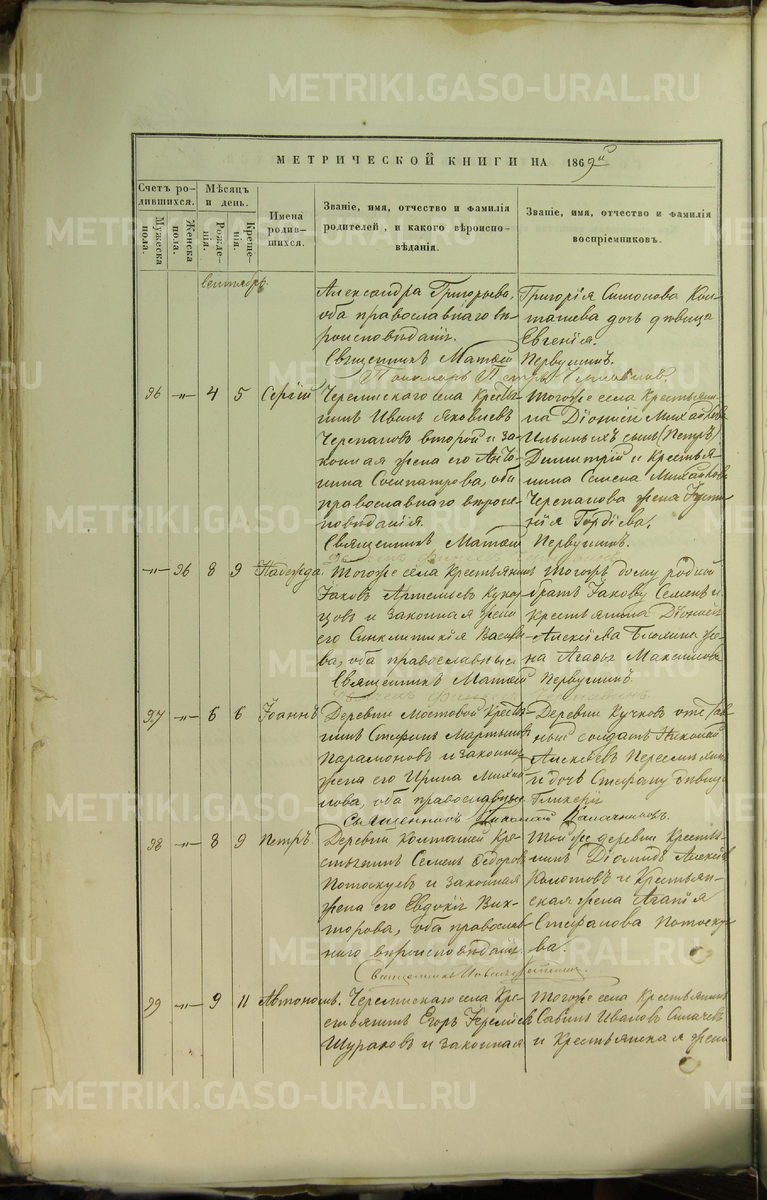 МЕТРИЧЕСКОЙ КНИГИ НА 1869й
Счетъ родившихся.
Мужеска пола.
Женска пола.
Мѣсяцъ и день.
Рожденія.
Крещенія.
Имена родившихся.
Званіе, имя, отчество и фамилія родителей, и какого вѣроисповѣданія.
Званіе, имя, отчество и фамилія воспріемниковъ.
сентябрь.
Александра Григорьева,
оба православнаго вѣ-
роисповѣданія.
Священникъ Матѳій Первушинъ.
Григорія Симонова Кол-
ташева дочь дѣвица
Евгенія.
96 -"- 4 5 Сергій
Черемисскаго села крестья-
нинъ Иванъ Яковлевъ
Черепановъ второй и за-
конная жена его Анто-
нина Сосипатрова, оба
православнаго вѣроис-
повѣданія.
Священникъ Матѳій Первушинъ.
Тогоже села крестьяни-
на Діонисія Михайлова
Ильиныхъ сынъ (Петръ)
Димитрій и крестья-
нина Семена Михайлова
Черепанова жена Іусти-
нія Гордіева.
-"- 96 8 9 Надежда.
Тогоже села крестьянинъ
Іаковъ Артемьевъ
и законная жена
его Синклитикія
ва, оба православные
Священникъ Матѳій Первушинъ.
Тогожъ дому родной
братъ Іакову Семенъ и
крестьянина Діонисія
Алексіева Блохина же-
на Агафья Максимова
97 -"- 6 6 Іоаннъ
Деревни Мостовой кресть-
нинъ Стефанъ Мартыновъ
Парамоновъ и законная
жена его Ирина Михай-
лова, оба православные
Священникъ Николай
Деревни Кучковой
солдатъ Николай
Алексѣевъ
и дочь Стефану дѣвица
Гликерія
98 -"- 8 9 Петръ
Деревни Колташей кре-
стьянинъ Семенъ Ѳедоровъ
Потоскуевъ и законная
жена его Евдокія Вик-
торова, оба православ-
наго вѣроисповѣданія.
Той же деревни крестья-
нинъ Діомидъ Алексіевъ
Колотовъ и крестьян-
ская жена Агапія
Стефанова Потоскуе-
ва.
99 -"- 9 11 Автономъ.
Черемисскаго села кре-
стьянинъ Егоръ Іереміевъ
Шураковъ и законная
Тогоже села крестьянинъ
Савинъ Ивановъ
и крестьянская жена
METRIKI.GASO-URAL.RU